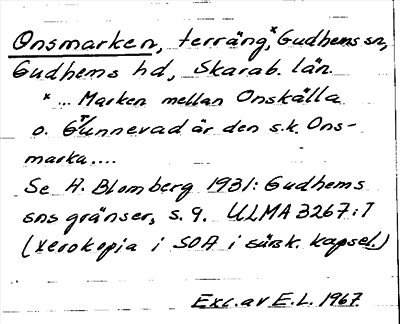 Onsmarken, terräng,* Gudhems sn,
Gudhems hd, Skarab. län.
* ... Marken mellan Onskälla
o. Gunnevad är den s.k. Ons-
marka....
Se H. Blomberg 1931: Gudhems
sns gränser, s. 9. ULMA 3267:7
(xerokopia i SOA i särsk. kapsel.)
Exc. av E.L. 1967